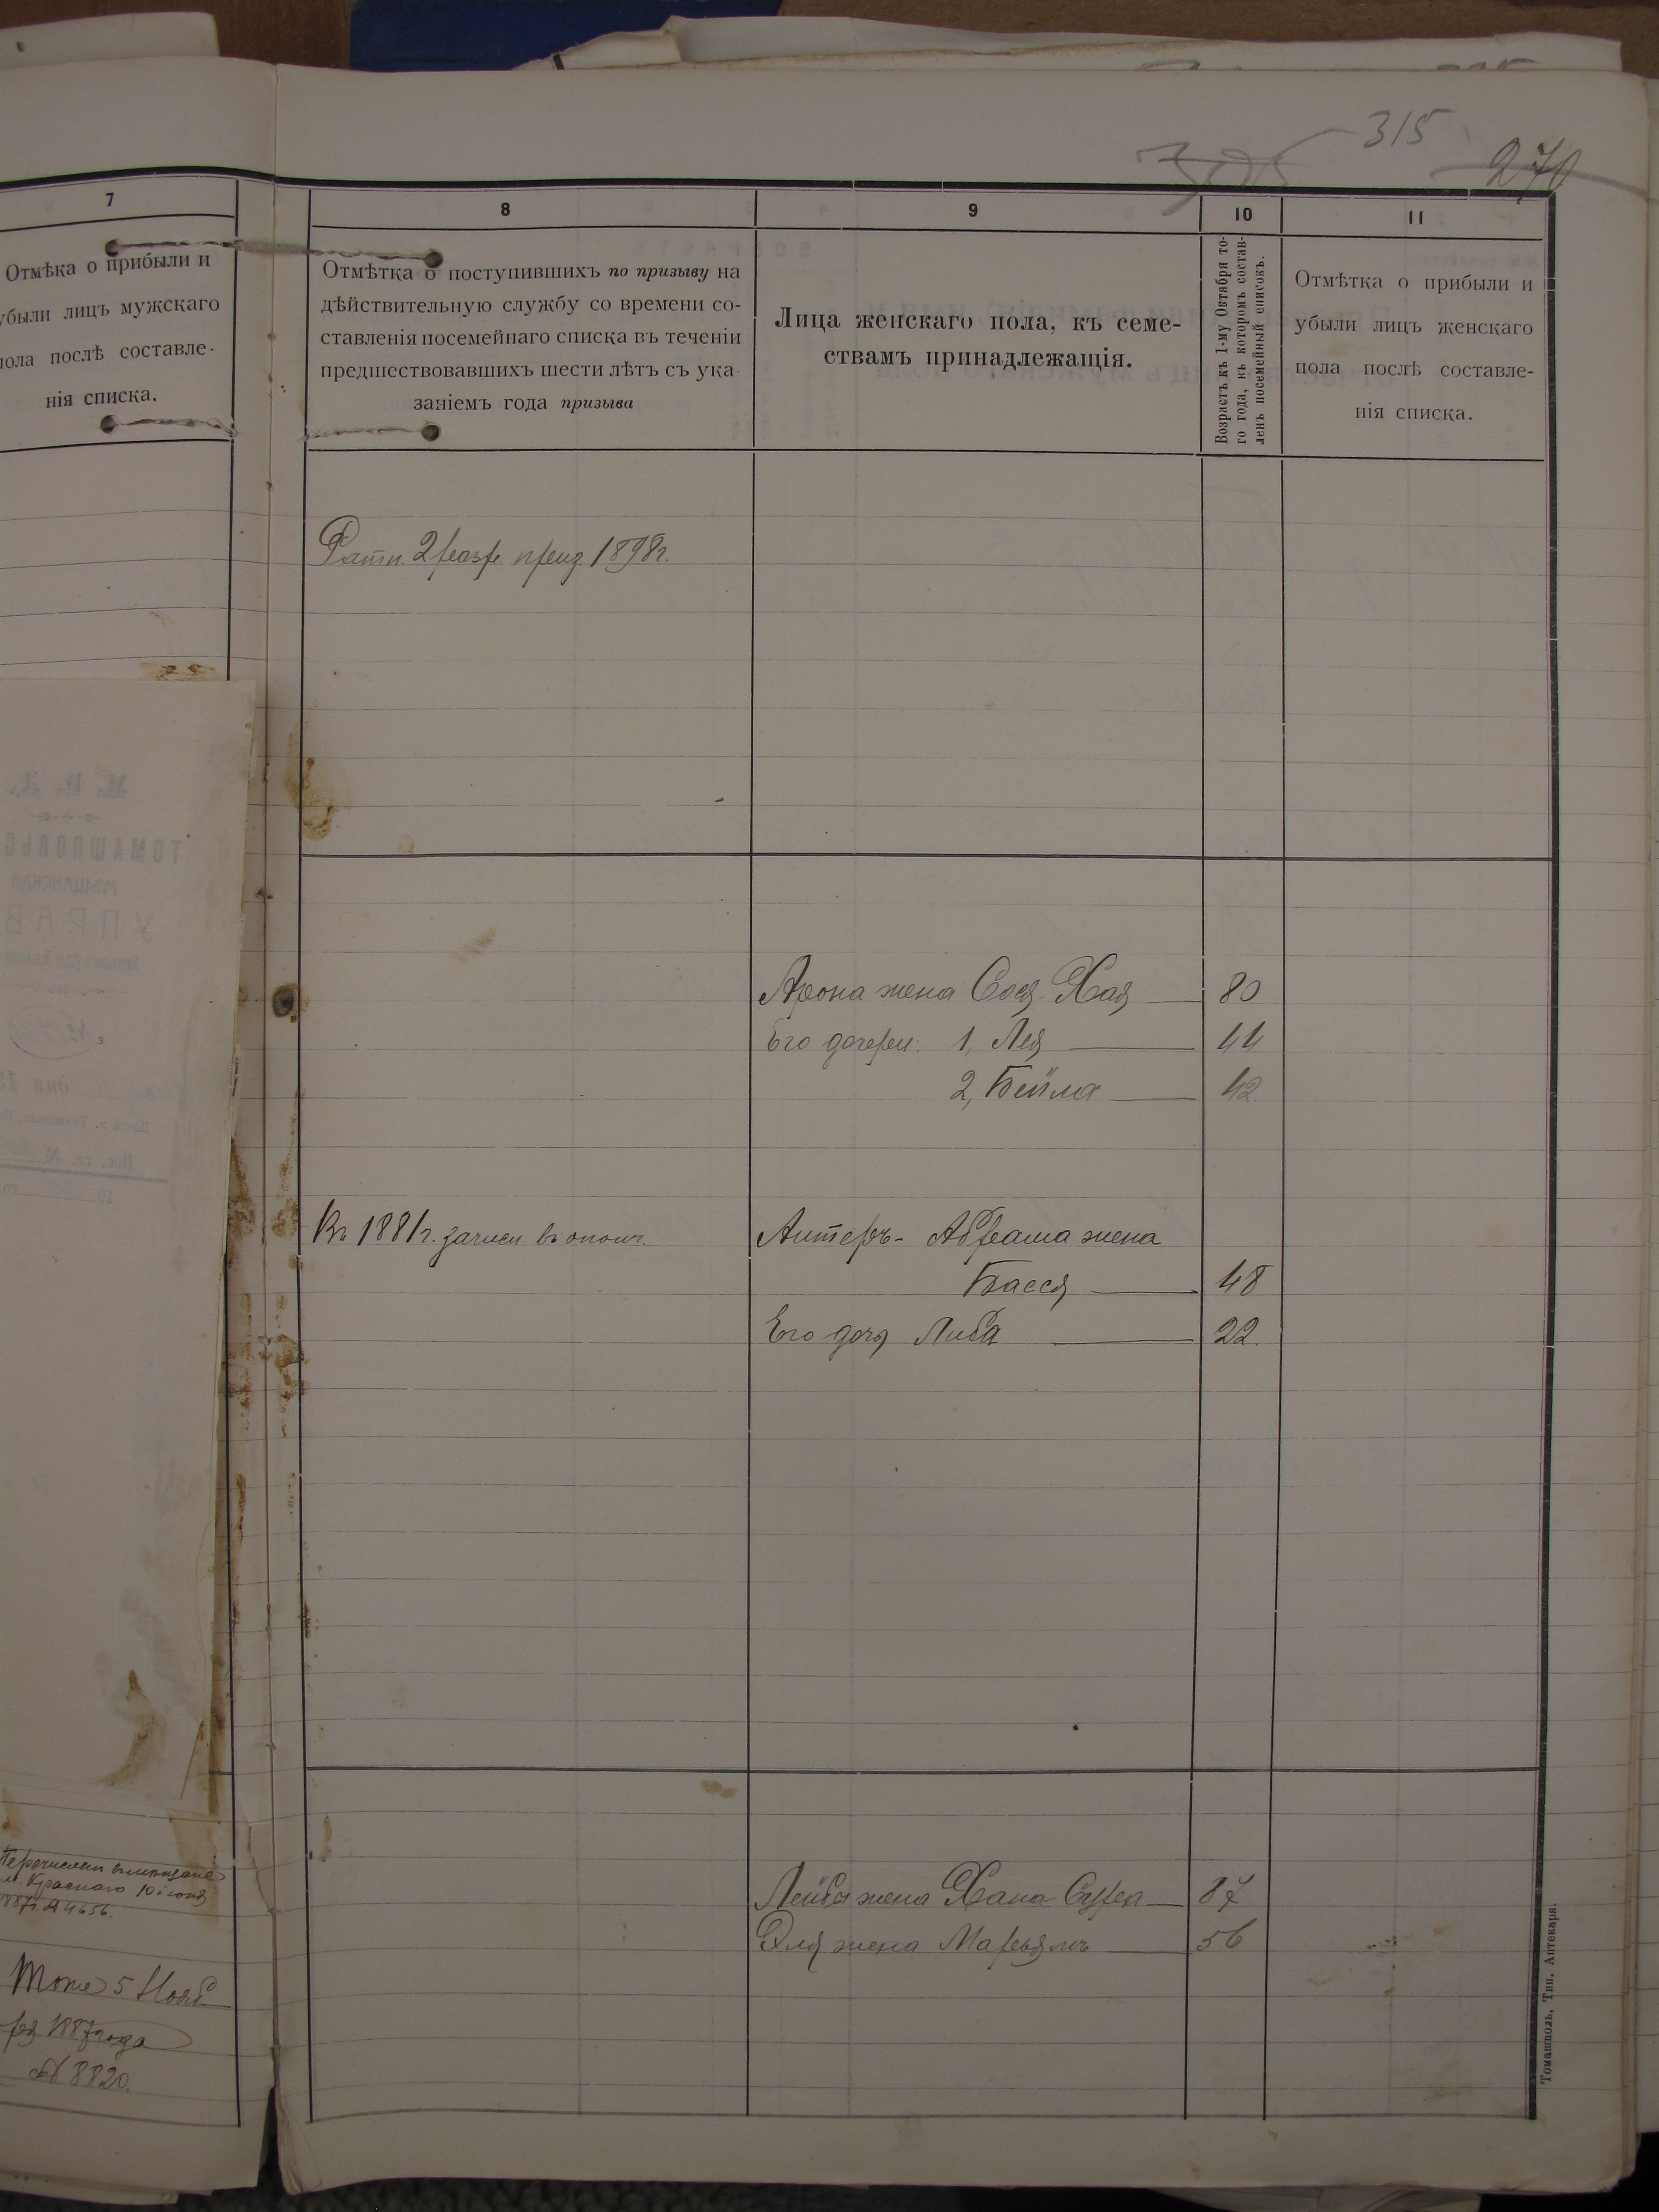 315
305
270
7
Отмѣка о прибыли и
убыли лицъ мужскаго
пола послѣ составле-
нія списка.
8
Отмѣтка о поступившихъ по призыву на
дѣйствительную службу со времени со-
ставленія посемейнаго списка въ теченіи
предшествовавшихъ шести лѣтъ съ ука
заніемъ года призыва
9
Лица женскаго пола, къ семе-
ствамъ принадлежащія.
10
Возрастъ къ 1-му Октября то-
го года, въ которомъ состав-
ленъ посемейный списокъ.
11
Отмѣтка о прибыли и
убыли лицъ женскаго
пола послѣ составле-
нія списка.
Ратн. 2 разр. приз. 1898г.
Арона жена Сося-Хая 80
Его дочери: 1, Лея 44
2, Бейла 42
Въ 1881г. зачисл. въ ополч. Аитеръ-Абрама жена
Бася 48
Его дочь Либа 22.
Перечислен
м. Краснаго 10 іюня
1887г. № 4656.
Лейба жена Хана Сура 87
Эля жена Марьямъ 56
Тоже 5 Нояб
ря 1887 года
№ 8820.
Томашполь, Тип. Аптекаря.